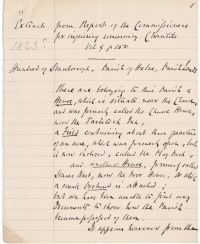 1
Extracts from Reports of the Commissioners
for inquiring concerning Charities
1823? Vol 9 p. 100
Hundred of Stanborough, Parish of Holne, Parish Lands
There are belonging to this Parish a
House, which is situate near the Church
and was formerly called the Church House,
now the Tavistock Inn,
a Field containing about three quarters
of an acre, which was formerly open, but
is now inclosed, called the Play Park,
and another House, formerly called
now the Poor House, to which
a small orchard is attached;
but we have been unable to find any
documents to show how the Parish
became possessed of them.
It appears however from the